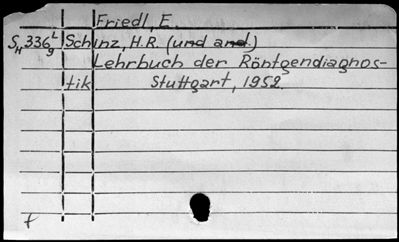 Friedl, E.
SH 336 L/9 Schinz, H.R. (und and.)
Lehrbuch der Röntgendiagnos-
tik Stuttgart, 1952.